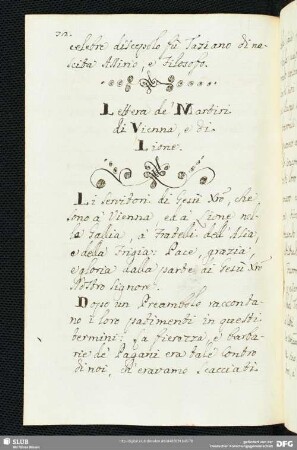 celebre discepolo fù Taziano di na-
scita Assirio, e Filosofo.
Lettera de' Martiri
di Vienna, e di
Lione.
Li Servitori di Gesù Xṙo, che
sono a Vienna ed a Lione nel-
la Gallia, a' Fratelli dell'Asia,
e della Frigia: Pace, grazia,
e gloria dalla parte di Gesù Xṙo
Nostro Signore.
Dopo un Preambolo racconta-
no i loro patimenti in questi
termini: La fierezza, e barba-
rie de' Pagani era tale contro
di noi, ch'eravamo scacciati
SLUB
Wir führen Wissen.
gefördert von der
Deutschen Forschungsgemeinschaft
DFG